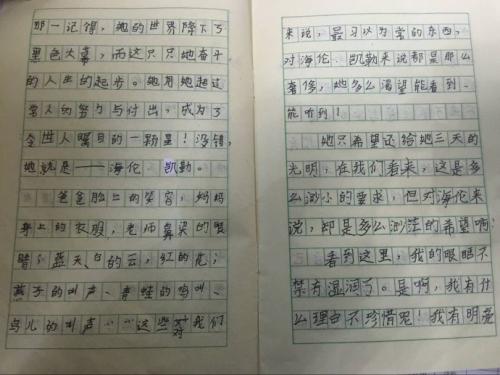 那一记得，她的世界降下了
黑色大幕，而这只只她奋斗
的人生的起步。她用她超过
常人的努力与付出，成为了
全世人瞩目的一颗星！没错，
她就是——海伦 凯勒。
爸爸脸上的笑容，妈妈
身上的衣服，老师鼻梁的眼
睛，蓝天、白的云，红的花；
燕子的叫声、青蛙的鸣叫、
鸟儿的叫声……这些对我们
来说，最习以为常的东西，
对海伦 凯勒来说都是那么
奢侈，她多么渴望能看到、
能听到！
她只希望还给她三天的
光明，在我们看来，这是多
么渺小的要求，但对海伦来
说，却是多么渺茫的希望啊！
看到这里，我的眼眶不
禁有湿润了。是啊，我有什
么理由不珍惜呢！我有明亮